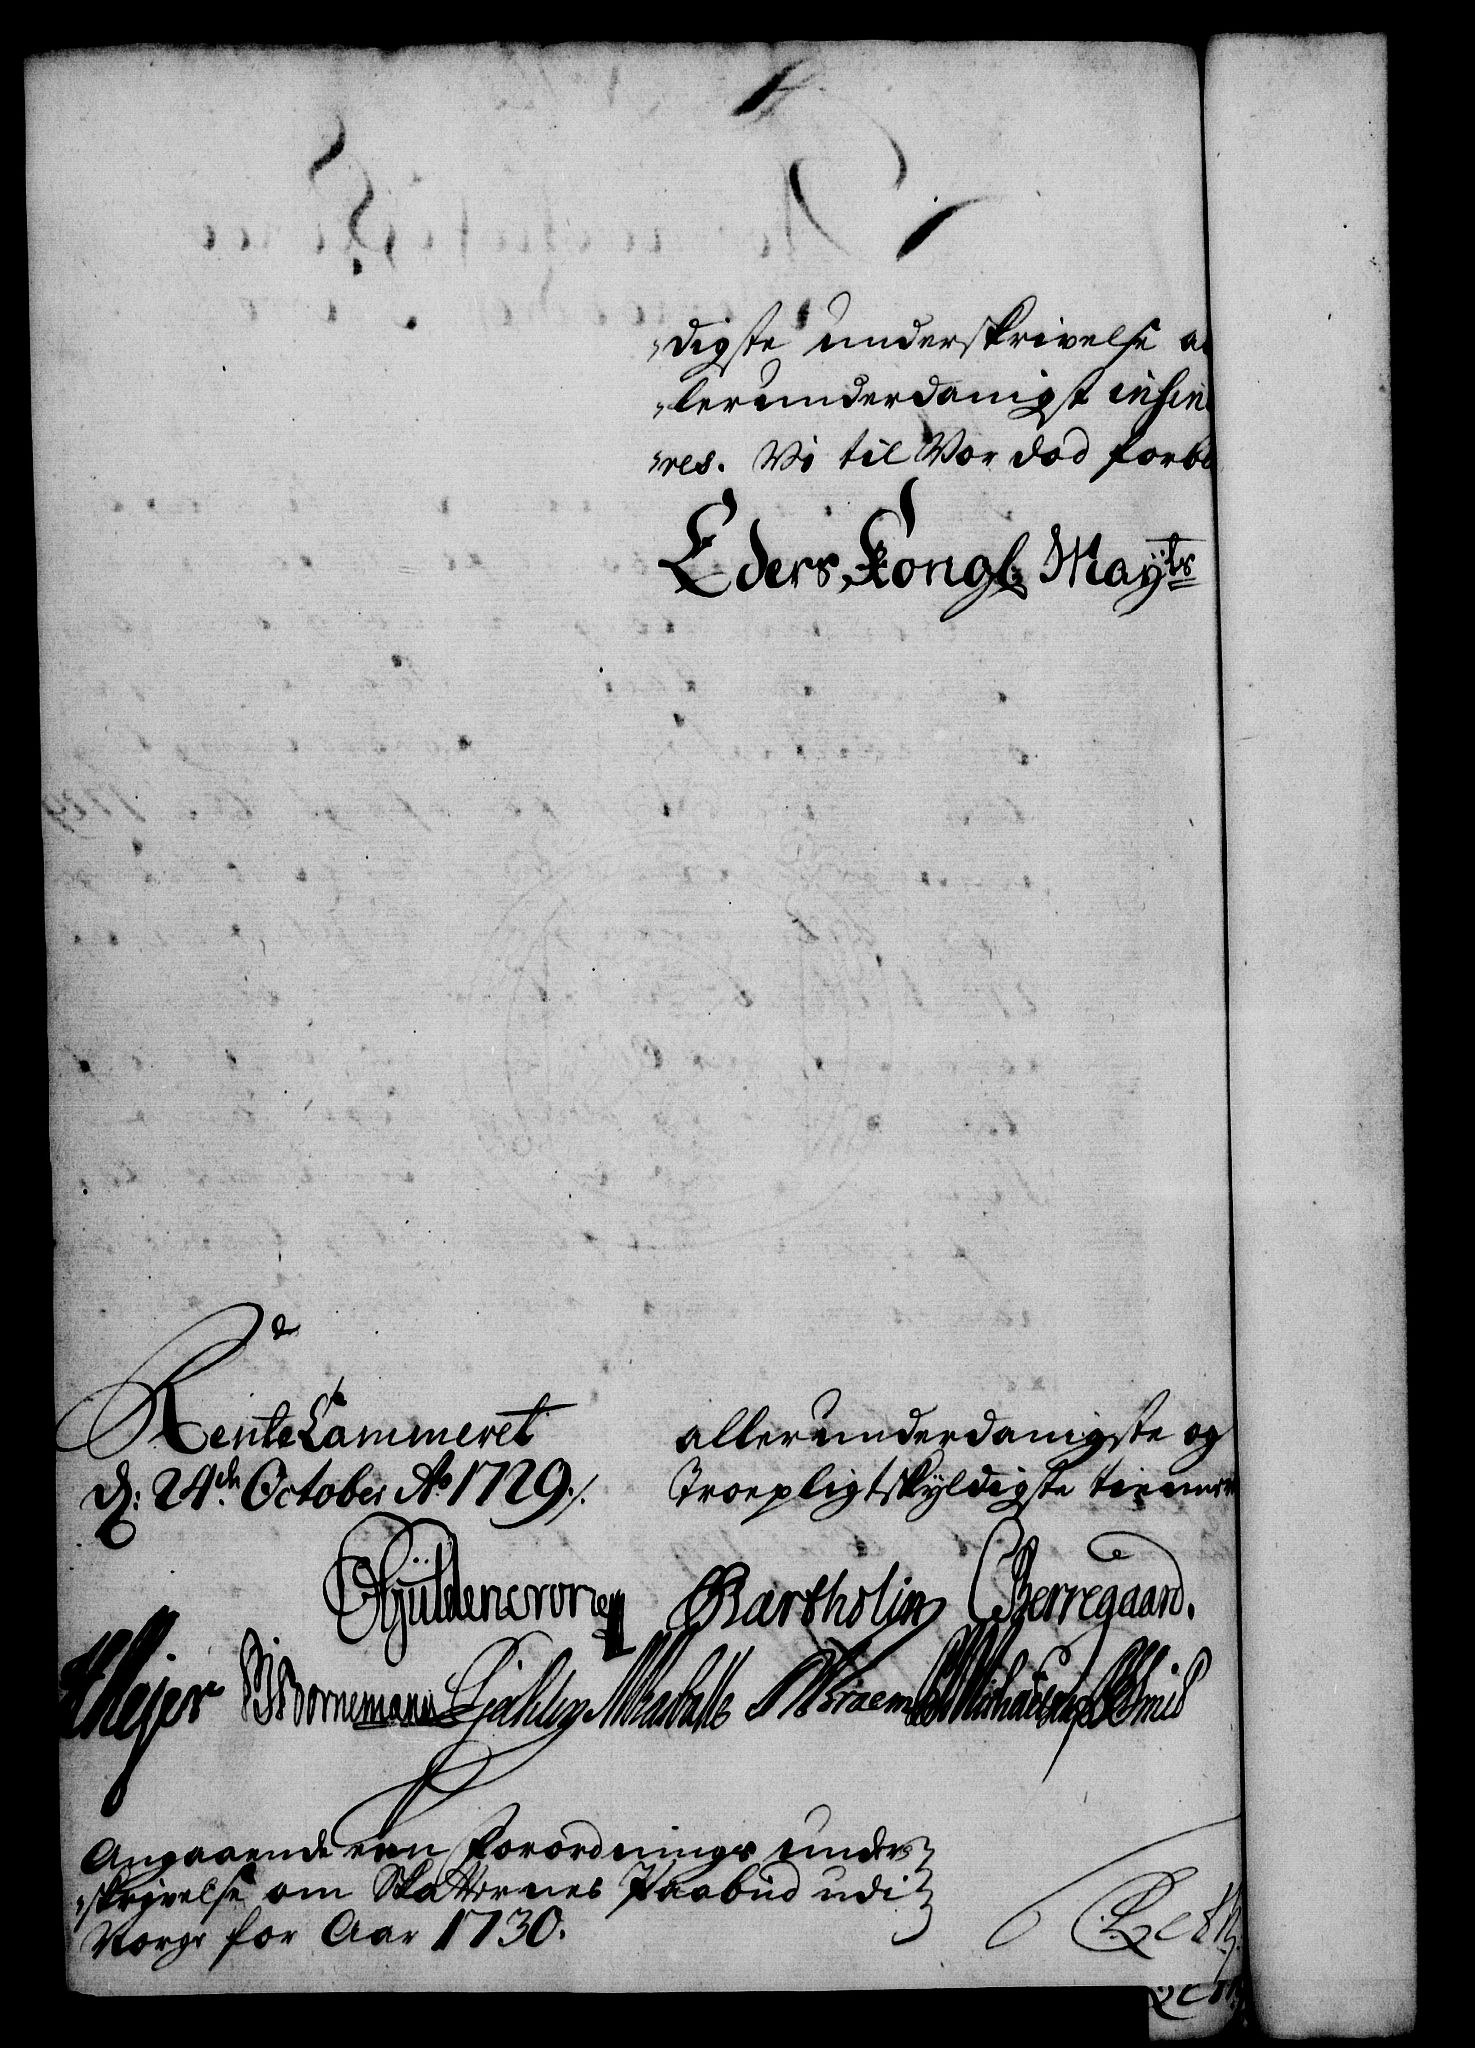 digste underskrivelse al
lerunderdanigst insinu
res. Vi til Vor død forbl
Eders Kongl: Mayts
RenteCammeret
d: 24de October Ao 1729
allerunderdanigste og
Troepligtskyldigste tienere
Güldencrone Bartholin CBerregaard.
Meyer Bornemann
Angaaende een Forordnings under
skrivelse om Skatternes Paabud udi
Norge for Aar 1730.